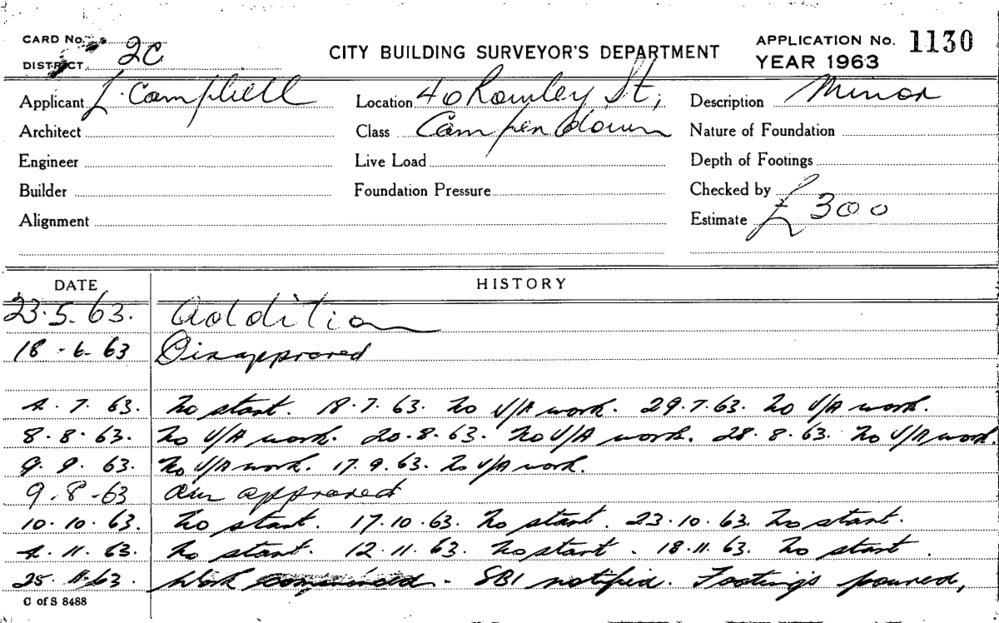 CARD No.
DISTRICT 2C
CITY BUILDING SURVEYOR'S DEPARTMENT
APPLICATION No. 1130
YEAR 1963
Applicant L. Campbell
Location 40 Rowley St,
Description Minor
Architect
Class Camperdown
Nature of Foundation
Engineer
Live Load
Depth of Footings
Builder
Foundation Pressure
Checked by
Alignment
Estimate £300
DATE HISTORY
23.5.63. Addition
18-6-63 Disapproved
4.7.63. No start. 18.7.63. No U/A work. 29.7.63. No U/A work.
8.8.63. No U/A work. 20.8.63. No U/A work. 28.8.63. No U/A work.
9.9.63. No U/A work. 17.9.63. No U/A work.
9-8-63 approved
10.10.63. No start. 17.10.63. No start. 23.10.63. No start.
4.11.63. No start. 12.11.63. No start. 18.11.63. No start.
25.11.63. Work commenced. SBI notified. Footings poured,
C of S 8488